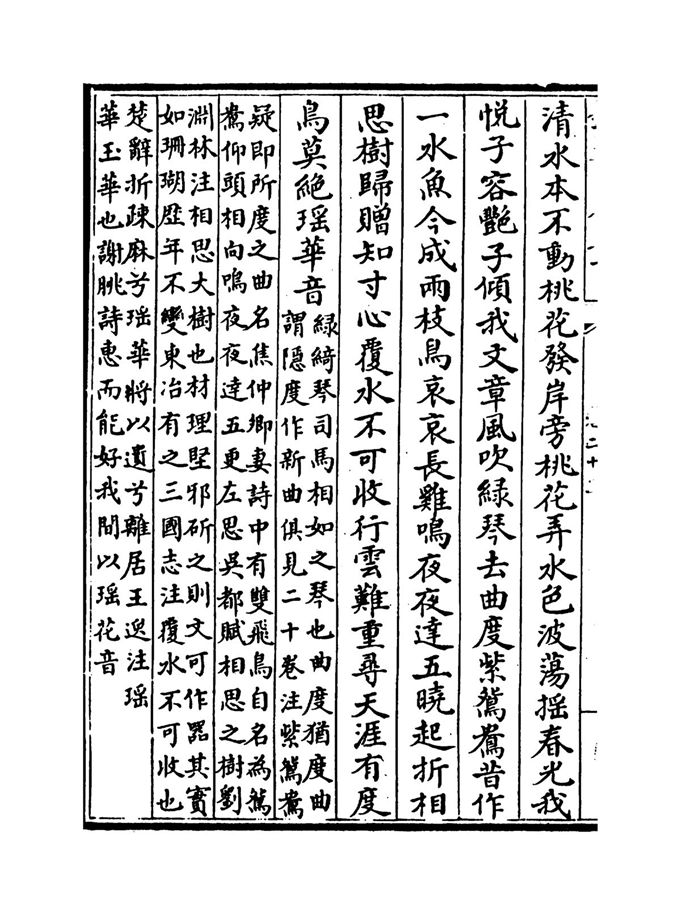 清水本不動桃花發岸旁桃花弄水色波蕩揺春光我
悦子容艷子傾我文章風吹緑琴去曲度紫鴛鴦昔作
一水魚今成兩枝鳥哀哀長雞鳴夜夜達五曉起折相
思樹歸贈知寸心覆水不可收行雲難重尋天涯有度
鳥莫絶瑶華音
緑綺琴司馬相如之琴也曲度猶度曲
謂隠度作新曲俱見二十卷注紫鴛鴦
疑即所度之曲名焦仲卿妻詩中有雙飛鳥自名為鴛
鴦仰頭相向鳴夜夜達五更左思吳都賦相思之樹劉
淵林注相思大樹也材理堅邪斫之則文可作器其實
如珊瑚歴年不變東冶有之三國志注覆水不可收也
楚辭折疎麻兮瑶華將以遺兮離居王逸注瑶
華玉華也謝朓詩惠而能好我間以瑶花音